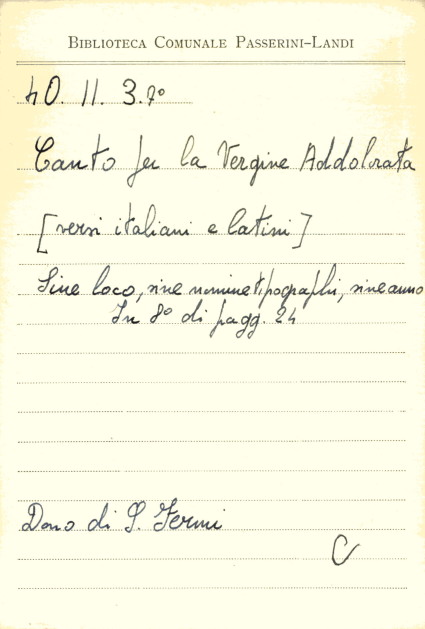 BIBLIOTECA COMUNALE PASSERINI-LANDI
40. 11. 3. 7º
Canto per la Vergine Addolorata
[versi italiani e latini]
Sine loco, sine nomine tipographi, sine anno
In 8º di pagg. 24
Dono di S. Fermi
C